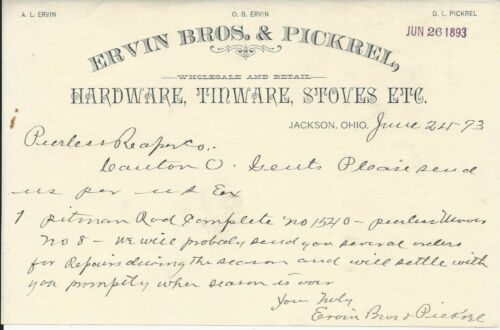 A. L. ERVIN O. B. ERVIN D. L. PICKREL
JUN 26 1893
ERVIN BROS. & PICKREL,
WHOLESALE AND RETAIL
HARDWARE, TINWARE, STOVES ETC.
JACKSON, OHIO, June 24-93
Peerless Reaper Co.,
Canton O. Gents Please send
us per U S Ex
1 pitman Rod Complete No 1540 - peerless Mower
No 8 - we will probaly send you several orders
for Repairs during the season and will settle with
you promptly when season is over
Your Truly
Ervin Bros & Pickrel